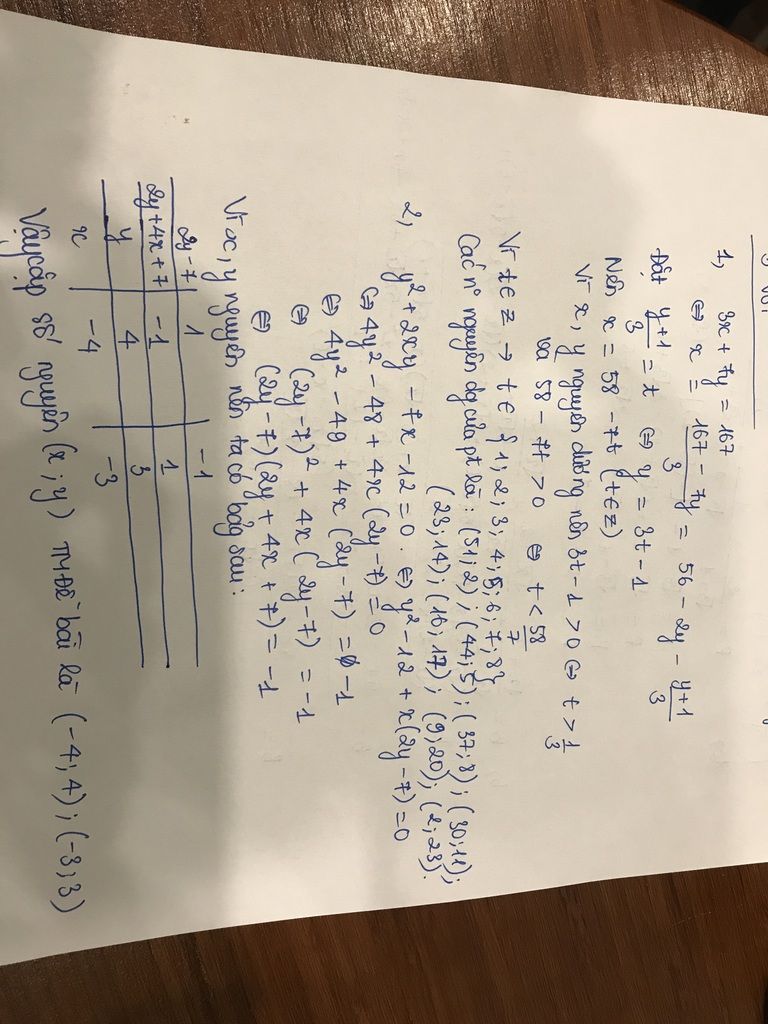 1, 3x + 7y = 167
⇔ x = \frac{167 - 7y}{3} = 56 - 2y - \frac{y+1}{3}
Đặt \frac{y+1}{3} = t ⇔ y = 3t - 1
Nên x = 58 - 7t (t∈Z)
Vì x, y nguyên dương nên 3t - 1 > 0 ⇔ t > \frac{1}{3}
và 58 - 7t > 0 ⇔ t < \frac{58}{7}
Vì t∈Z → t ∈ {1; 2; 3; 4; 5; 6; 7; 8}
Các n° nguyên dg của pt là: (51; 2); (44; 5); (37; 8); (30; 11);
(23; 14); (16; 17); (9; 20); (2; 23).
2, y² + 2xy - 7x - 12 = 0. ⇔ y² - 12 + x(2y - 7) = 0
⇔ 4y² - 48 + 4x(2y - 7) = 0
⇔ 4y² - 49 + 4x(2y - 7) = -1
⇔ (2y - 7)² + 4x(2y - 7) = -1
⇔ (2y - 7)(2y + 4x + 7) = -1
Vì x, y nguyên nên ta có bảng sau:
2y - 7 1 -1
2y + 4x + 7 -1 1
y 4 3
x -4 -3
Vậy cặp số nguyên (x; y) TM đề bài là (-4; 4); (-3; 3)